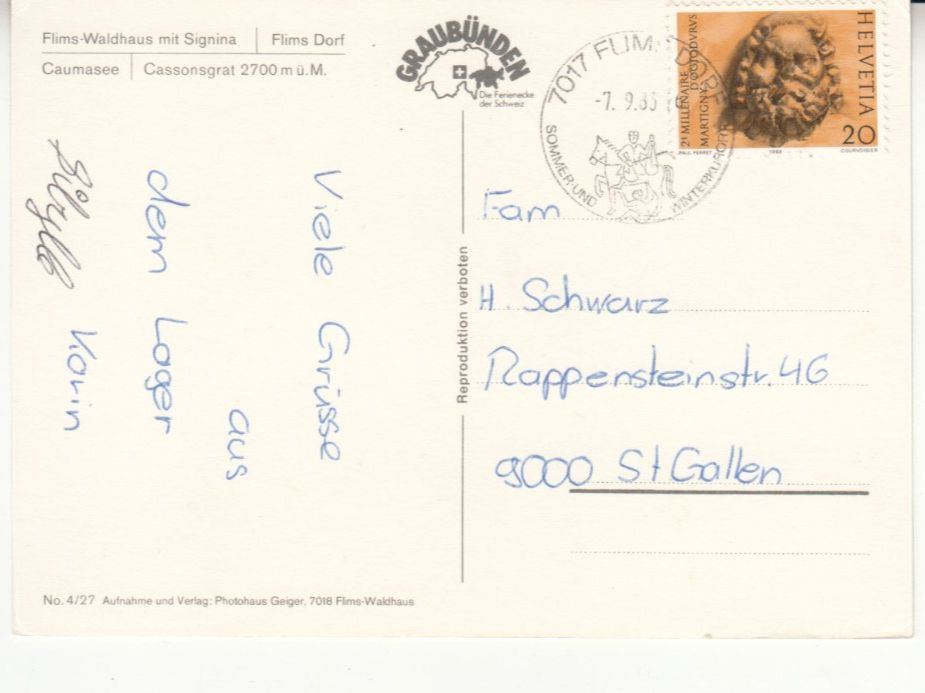 Flims-Waldhaus mit Signina | Flims Dorf
Caumasee | Cassonsgrat 2700 m ü.M.
GRAUBÜNDEN
Die Ferienecke
der Schweiz
7017 FLIMS DORF
-7. 9.83
SOMMER- UND WINTERKURORT
2e MILLENAIRE
D'OCTODVRVS
MARTIGNY
HELVETIA
20
PAUL PERRET 1983 COURVOISIER
Viele Grüsse
aus
dem Lager
Karin
Sibylle
Reproduktion verboten
Fam
H. Schwarz
Rappensteinstr. 46
9000 St Gallen
No. 4/27 Aufnahme und Verlag: Photohaus Geiger, 7018 Flims-Waldhaus